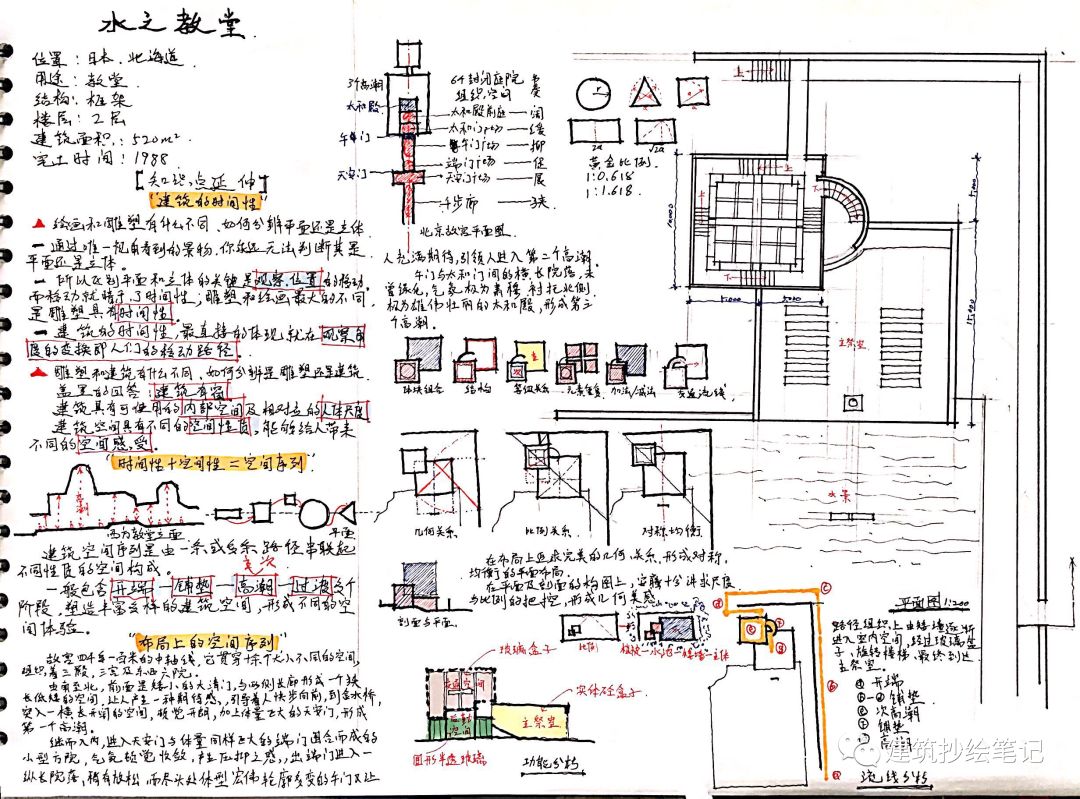 水之教堂
位置：日本．北海道
用途：教堂
结构：框架
楼层：2层
建筑面积：520m²
完工时间：1988
[知识点延伸]
"建筑的时间性"
▲ 绘画和雕塑有什么不同，如何分辨平面还是立体
一 通过唯一视角看到的景物，你永远无法判断其是
平面还是立体。
一 所以区别平面和立体的关键是观察位置的移动，
而移动就精于了时间性；雕塑和绘画最大的不同
是雕塑具有时间性。
一 建筑的时间性，最直接的体现就在观察角
度的变换即人们的移动路径。
▲ 雕塑和建筑有什么不同，如何分辨是雕塑还是建筑
盖里的回答：建筑有窗
建筑具有可使用的内部空间及相对应的人体尺度
建筑空间具有不同的空间性质，能够给人带来
不同的空间感受。
"时间性+空间性=空间序列"
高潮
西方教堂立面
平面
建筑空间序列是由一条或多条路径串联起
不同性质的空间构成。
高次
一般包含开端一铺垫一高潮一过渡多个
阶段，塑造丰富多样的建筑空间，形成不同的空
间体验。
"布局上的空间序列"
故宫四千年一百米的中轴线，它贯穿十余个大小不同的空间，
组织着三殿，三宫及东西六院。
由南至北，前面是矮小的大清门，与两侧长廊形成一个狭
长低矮的空间，让人产生一种期待感，引导着人快步向前，到金水桥，
突入一横长开阔的空间，视觉开朗，加上体量巨大的天安门，形成
第一个高潮。
继而入内，进入天安门与体量同样巨大的端门围合而成的
小型方院，气氛顿觉收敛，产生压抑之感，出端门进入一
纵长院落，稍有放松，而尽头处体型宏伟轮廓多变的午门又让
3个高潮
太和殿
午门
天安门
6个封闭庭院
组织空间
太和殿前庭 — 阔
太和门广场 — 缓
午门广场 — 抑
端门广场 — 促
天安门广场 — 展
千步廊 — 狭
北京故宫平面图
人充满期待，引领人进入第二个高潮。
午门与太和门间的横长院落，未
曾绿化，气氛极为肃穆，衬托北侧
极为雄伟壮丽的太和殿，形成第三
个高潮。
体块组合
结构
等级关系
元素重复
加法/减法
交通流线
几何关系
比例关系
对称均衡
在布局上追求完美的几何关系，形成对称，
均衡的平面布局。
在平面及剖面的构图上，安藤十分讲求尺度
与比例的把控，形成几何美感
剖面与平面
比例
植被—水池—矮墙—主体
玻璃盒子
实体砼盒子
主祭堂
圆形半透玻璃
功能分析
r
a
2a
√2a
黄金比例
1：0.618
1：1.618
上
上
下
下
10,000
5,000
5,000
15,000
15,000
主祭室
水景
平面图1:200
路径组织上由矮墙逐渐
进入室内空间，经过玻璃盒
子，旋转楼梯，最终到达
主祭堂。
开端
铺垫
次高潮
铺垫
高潮
流线分析
建筑抄绘笔记